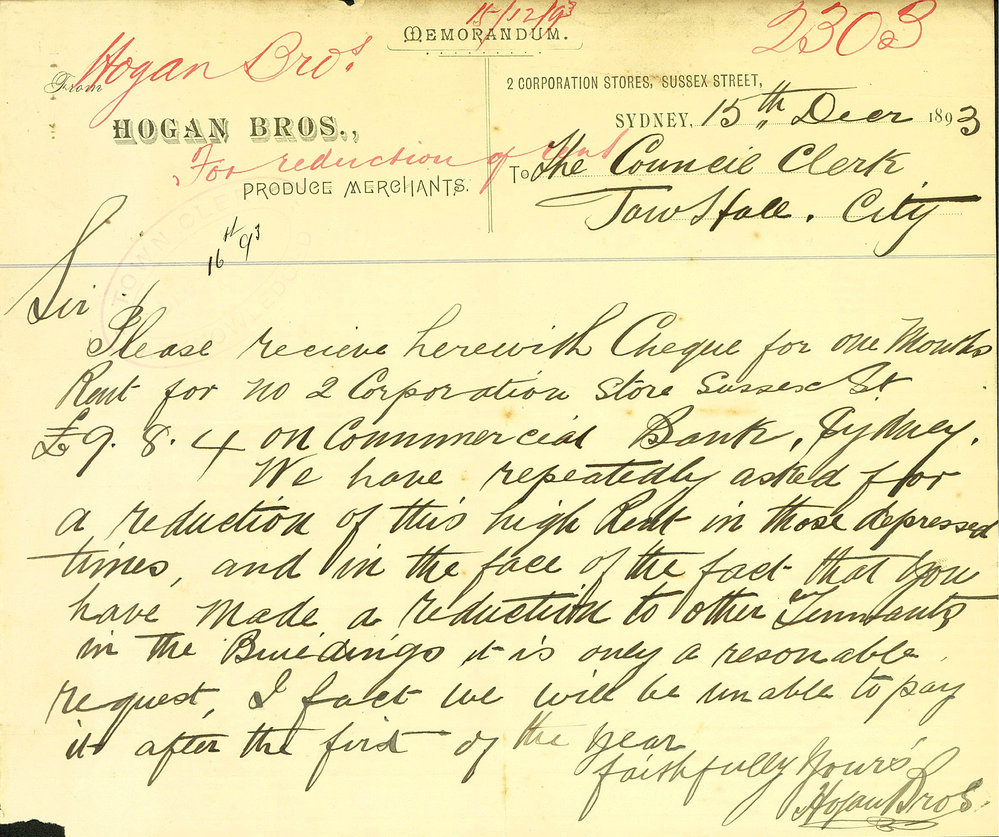 15/12/93
MEMORANDUM.
2303
Hogan Bros.
From
HOGAN BROS.,
For reduction of rent
PRODUCE MERCHANTS.
2 CORPORATION STORES, SUSSEX STREET,
SYDNEY, 15th Decr 1893
To the Council Clerk
Town Hall. City
TOWN
16 93
Sir
Please recieve herewith Cheque for one Months
Rent for no 2 Corporation Store Sussex St
£9. 8. 4 on Commercial Bank, Sydney.
We have repeatedly asked for
a reduction of this high Rent in those depressed
times, and in the face of the fact that you
have made a reduction to other Tennants
in the Buildings it is only a resonable
request, I fact we will be unable to pay
it after the first of the year
faithfully Yours
Hogan Bros.